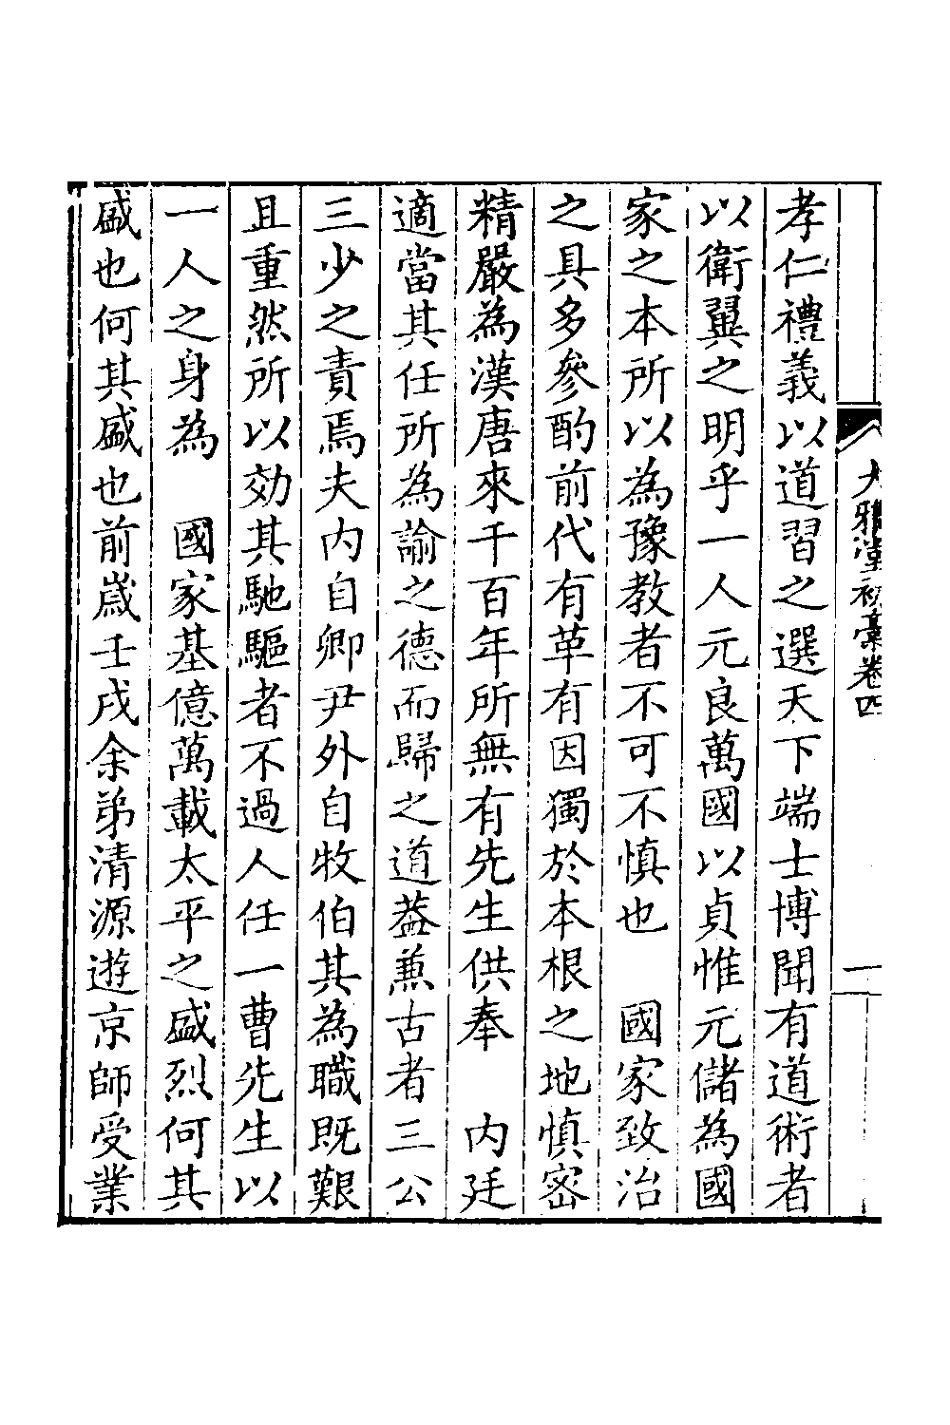 大雅堂初稾卷四
一
孝仁禮義以道習之選天下端士博聞有道術者
以衛翼之明乎一人元良萬國以貞惟元儲為國
家之本所以為豫教者不可不慎也　國家致治
之具多參酌前代有革有因獨於本根之地慎密
精嚴為漢唐來千百年所無有先生供奉　內廷
適當其任所為諭之德而歸之道葢兼古者三公
三少之責焉夫內自卿尹外自牧伯其為職既艱
且重然所以効其馳驅者不過人任一曹先生以
一人之身為　國家基億萬載太平之盛烈何其
盛也何其盛也前嵗壬戌余弟清源遊京師受業